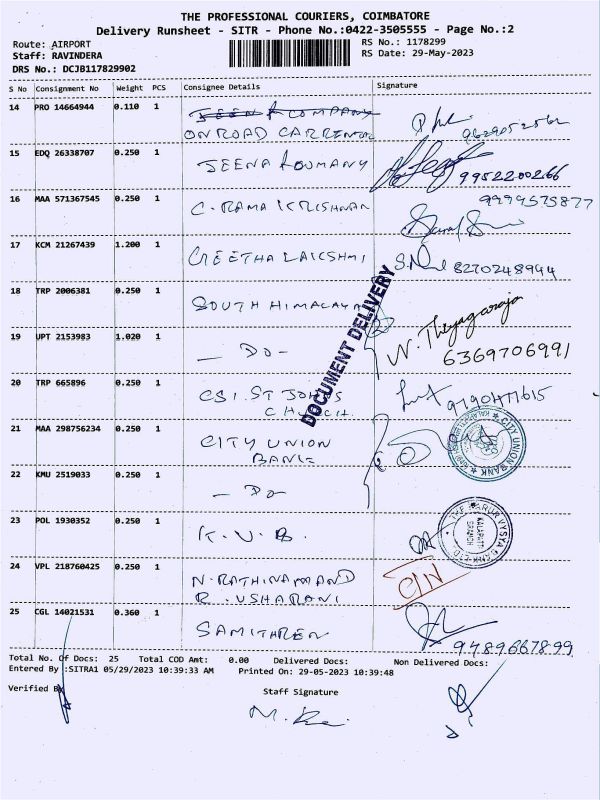 THE PROFESSIONAL COURIERS, COIMBATORE
Delivery Runsheet - SITR - Phone No.:0422-3505555 - Page No.:2
Route: AIRPORT
RS No.: 1178299
Staff: RAVINDERA
RS Date: 29-May-2023
DRS No.: DCJB117829902
S No Consignment No Weight PCS Consignee Details Signature
14 PRO 14664944 0.110 1
ONROAD CARRENTAL
15 EDQ 26338707 0.250 1 JEENA &COMPANY 9952220266
16 MAA 571367545 0.250 1 C. RAMA KRISHNAN 9999575877
17 KCM 21267439 1.200 1 GEETHA LAKSHMI 8270248944
18 TRP 2006381 0.250 1 SOUTH HIMALAYA
DOCUMENT DELIVERY
19 UPT 2153983 1.020 1 - DO - N. Thiyagaraja
6369706991
20 TRP 665896 0.250 1 CSI. ST JOHNS
CHURCH.
21 MAA 298756234 0.250 1 CITY UNION
BANK
CITY UNION BANK
22 KMU 2519033 0.250 1 - DO -
23 POL 1930352 0.250 1 K. V. B.
THE KARUR VYSYA BANK LTD
KALAPATTI
BRANCH
24 VPL 218760425 0.250 1 N. RATHINAM AND
R. USHARANI
25 CGL 14021531 0.360 1 SAMITHREN
9489667899
Total No. Of Docs: 25 Total COD Amt: 0.00 Delivered Docs: Non Delivered Docs:
Entered By :SITRA1 05/29/2023 10:39:33 AM Printed On: 29-05-2023 10:39:48
Verified By
Staff Signature